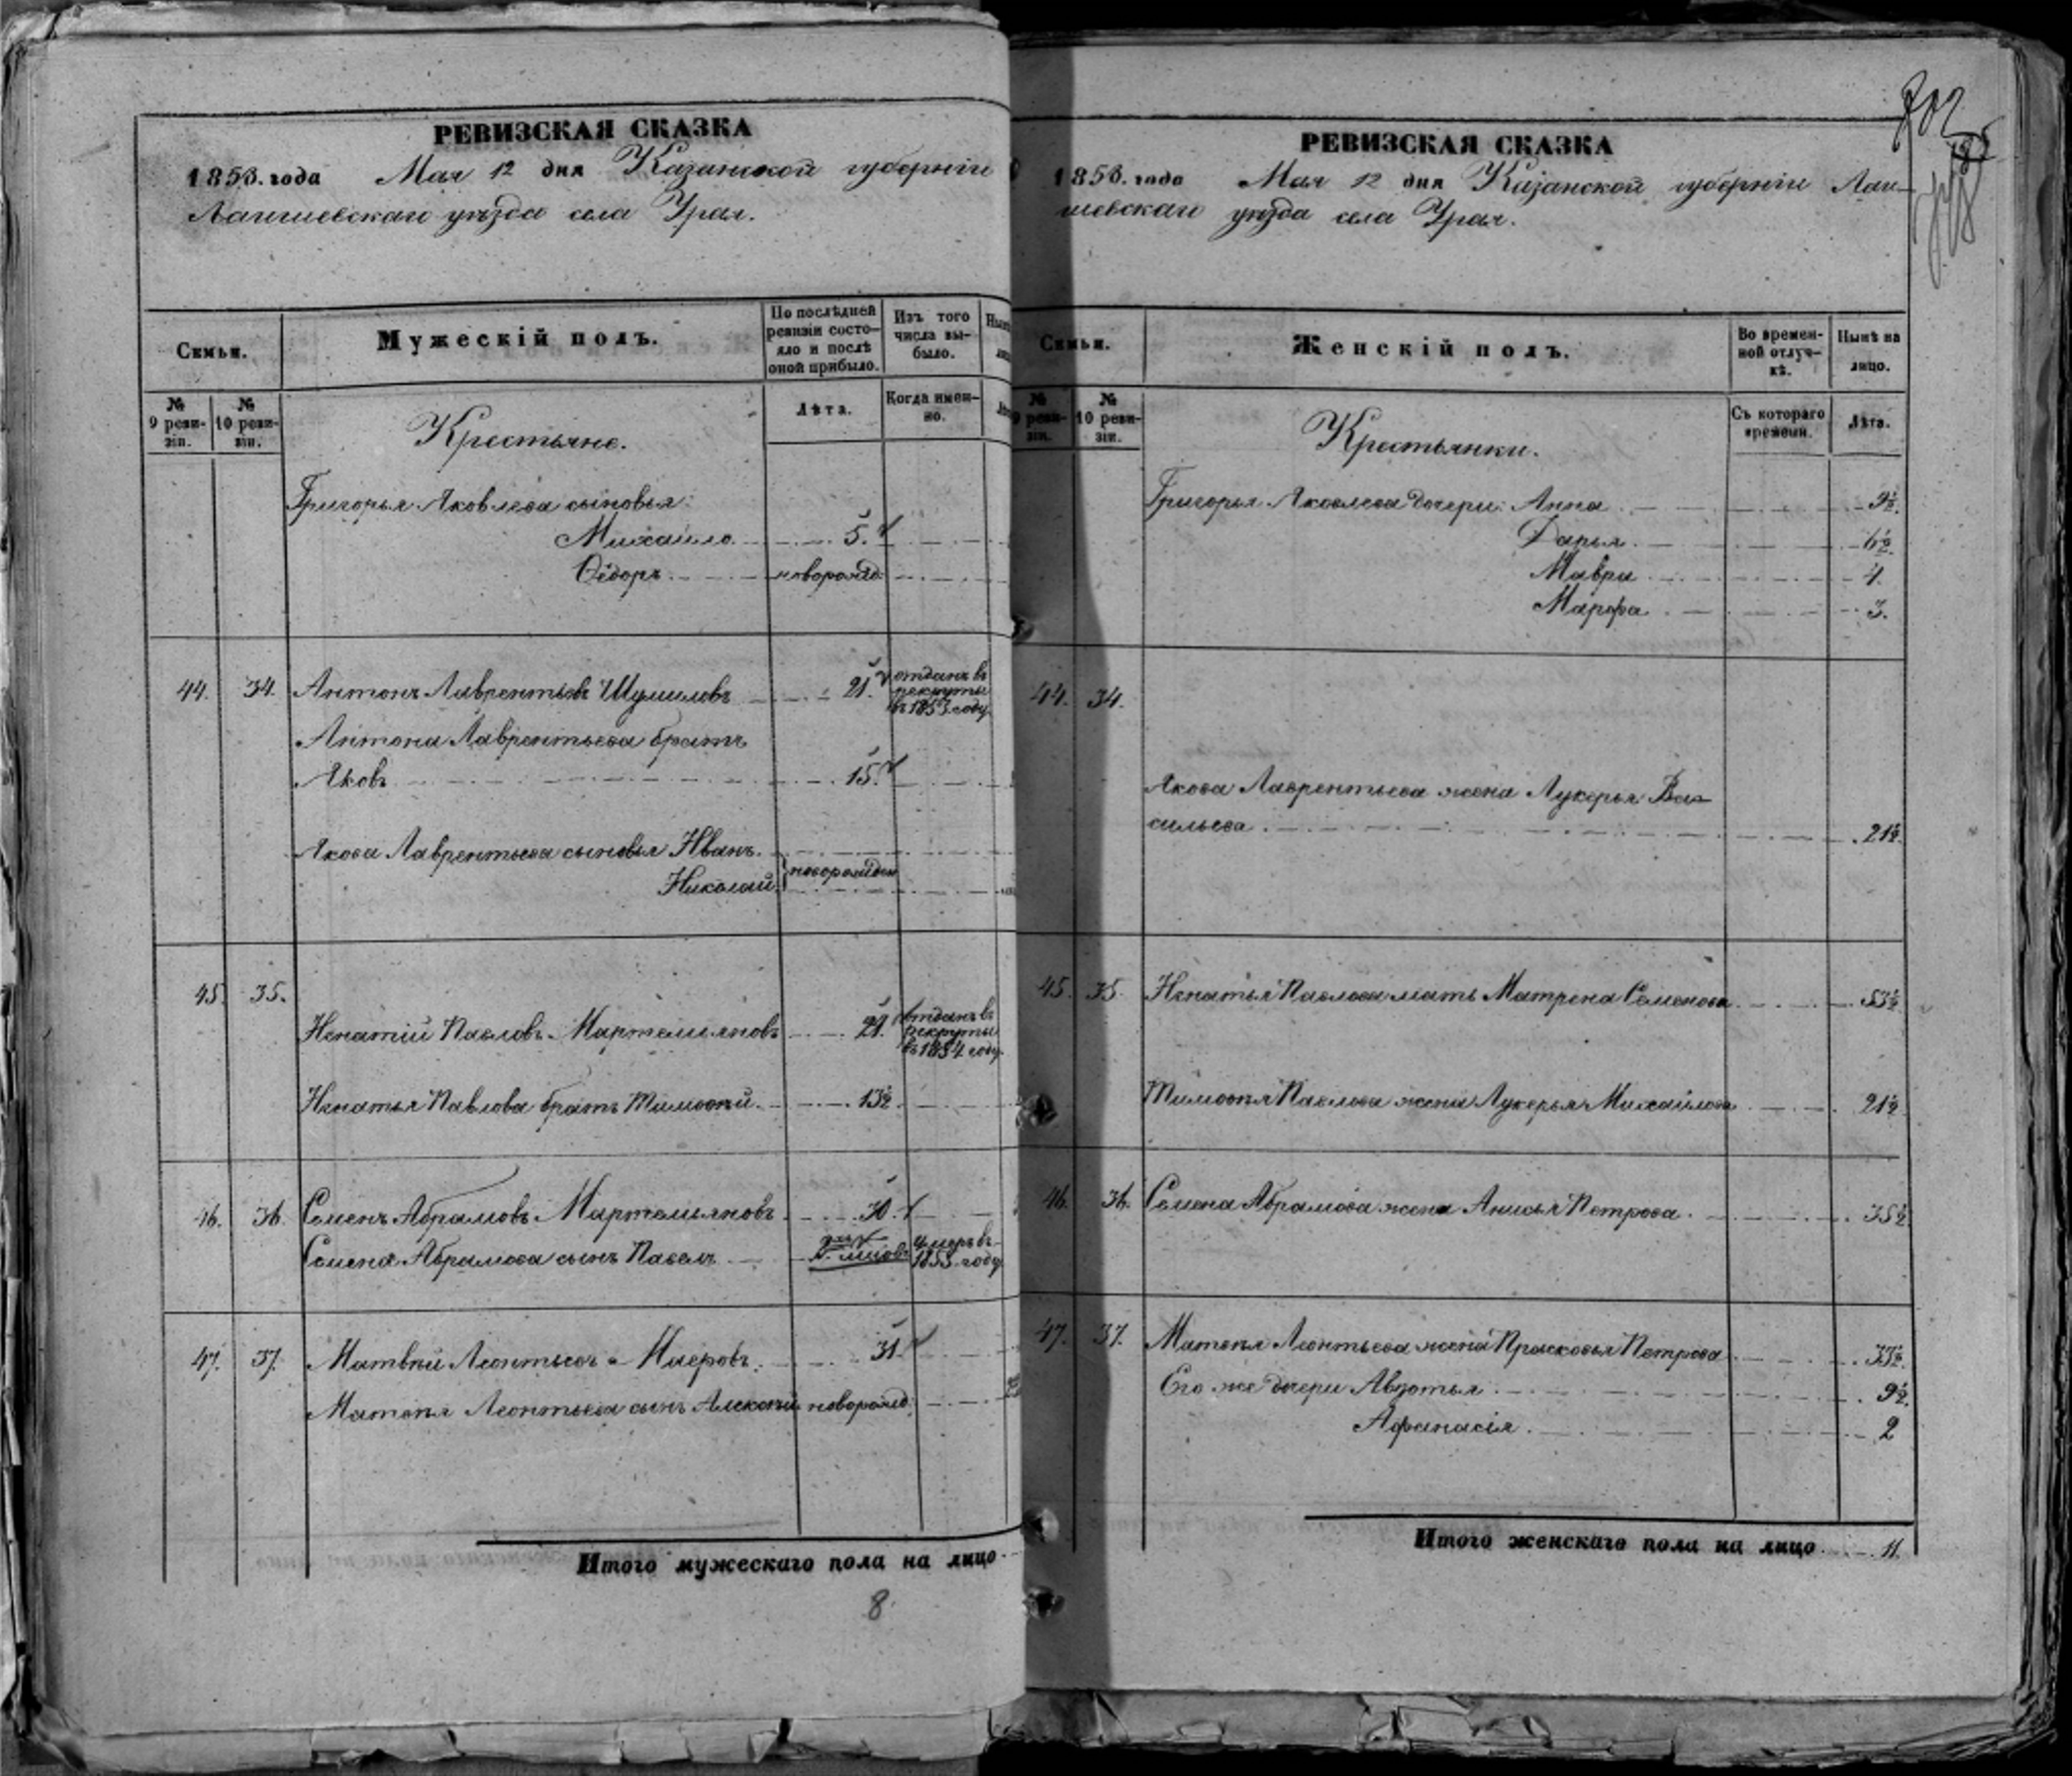 РЕВИЗСКАЯ СКАЗКА
1858. года Мая 12 дня Казанской губернiи
Лаишевскаго уѣзда села Урая.
Семьи.
Мужескiй полъ.
По послѣдней
ревизiи состо-
яло и послѣ
оной прибыло.
Изъ того
числа вы-
было.
№
9 реви-
зiи.
№
10 реви-
зiи.
Крестьяне.
Лѣта.
Когда имен-
но.
Григорья Яковлева сыновья:
Михайло 5.
Ѳедоръ новорожд.
44. 34. Антонъ Лаврентьевъ Шумиловъ 21. отданъ въ
рекруты
въ 1853 году
Антона Лаврентьева братъ
Яковъ 15.
Якова Лаврентьева сыновья Иванъ
Николай новорожден
45. 35.
Игнатiй Павловъ Мартемьяновъ 21. отданъ въ
рекруты
въ 1854 году
Игнатья Павлова братъ Тимоѳей. 13½.
46. 36. Семенъ Абрамовъ Мартемьяновъ 30.
Семена Абрамова сынъ Павелъ умеръ въ
1853 году
47. 37. Матвѣй Леонтьевъ Маеровъ. 31.
Матвѣя Леонтьева сынъ Алексѣй новорожд.
Итого мужескаго пола на лицо
8.
РЕВИЗСКАЯ СКАЗКА
1858. года Мая 12 дня Казанской губернiи Лаи-
шевскаго уѣзда села Урая.
Семьи.
Женскiй полъ.
Во времен-
ной отлуч-
кѣ.
Нынѣ на
лицо.
№
9 реви-
зiи.
№
10 реви-
зiи.
Крестьянки.
Съ котораго
времени.
Лѣта.
Григорья Яковлева дочери: Анна 9½.
Дарья. 6½.
Мавра 4.
Марѳа 3.
44. 34.
Якова Лаврентьева жена Лукерья Ва-
сильева 21½.
45. 35. Игнатья Павлова мать Матрена Семенова 53½
Тимоѳея Павлова жена Лукерья Михайлова 21½
46. 36. Семена Абрамова жена Анисья Петрова. 35½
47. 37. Матвѣя Леонтьева жена Прасковья Петрова 33½.
Его же дочери Авдотья 9½.
Афанасiя 2
Итого женскаго пола на лицо 11.